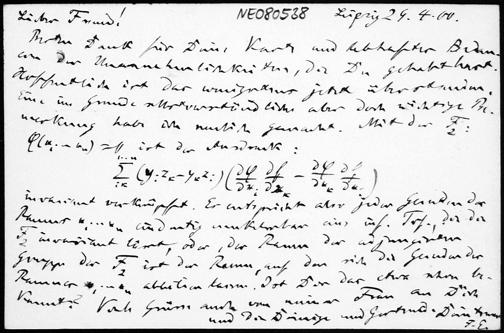 Lieber Freund! NE080538 Leipzig 24.4.00.
Besten Dank für Deine Karte und lebhaftes Bedau-
ern der Unannehmlichkeiten, die Du gehabt hast.
Hoffentlich ist das wenigstens jetzt überstanden.
Eine im Grunde selbstverständliche aber doch wichtige Be-
merkung habe ich neulich gemacht. Mit der F₂:
φ(u₁…uₙ) = u ist der Ausdruck:
∑ (yᵢzₖ - yₖzᵢ) (∂φ/∂uᵢ ∂f/∂uₖ - ∂φ/∂uₖ ∂f/∂uᵢ)
invariant verknüpft. Es entspricht also jeder Geraden des
Raumes u₁…uₙ eine inf. Trf., die die
F₂ invariant lässt, oder, der Raum der adjungierten
Gruppe der F₂ ist der Raum, auf den sich die Geraden des
Raumes u₁…uₙ abbilden lassen. Ist Dir das etwa schon be-
kannt? Viele Grüsse auch von meiner Frau an Dich
und die Deinige und Gertrud. Dein treuer
F.E.